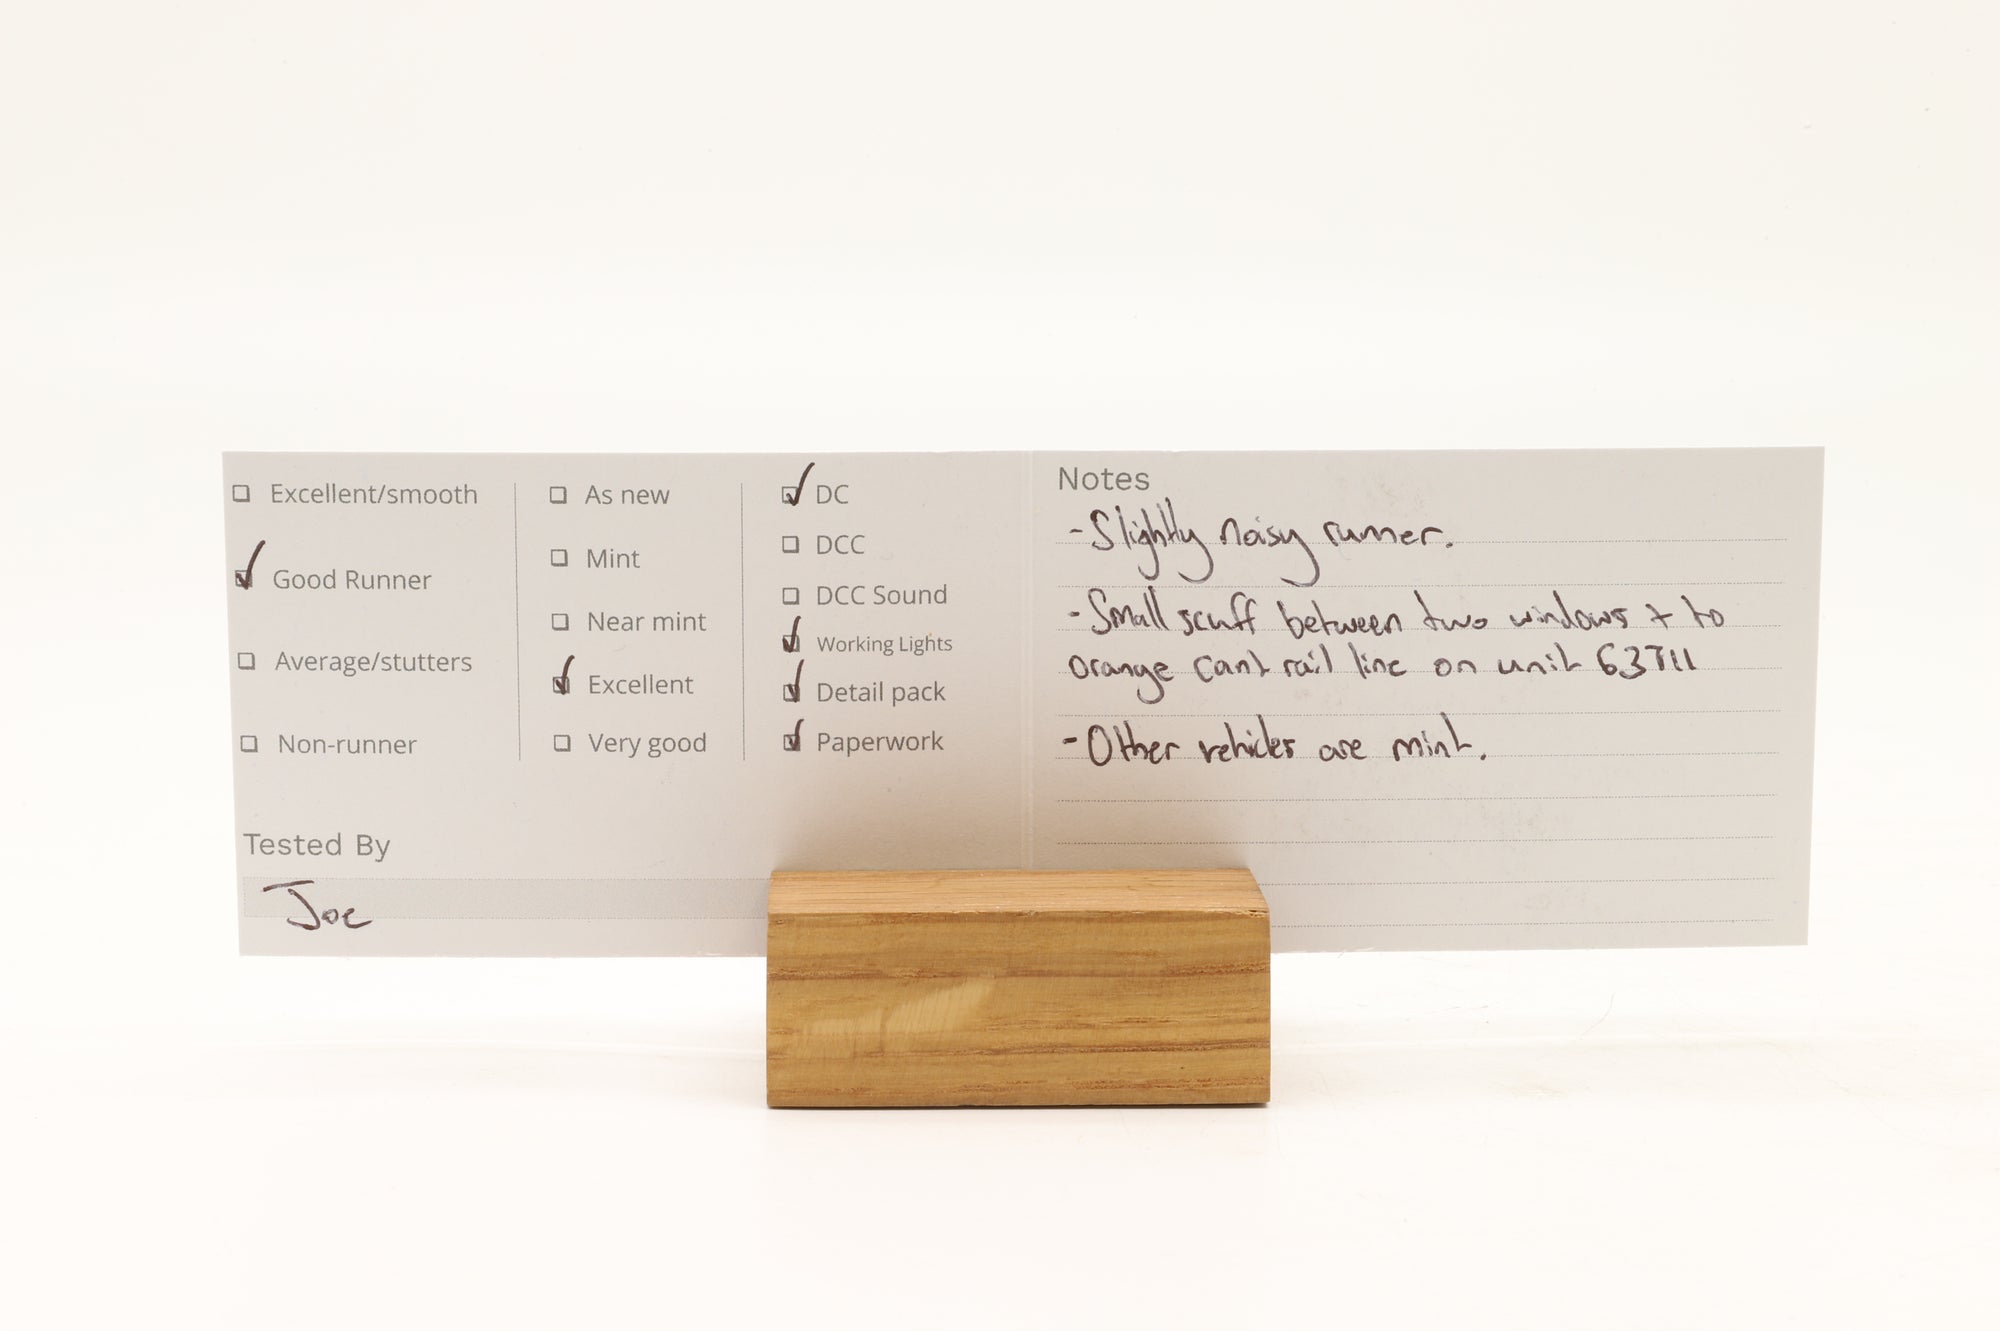 Excellent/smooth
Good Runner
Average/stutters
Non-runner
As new
Mint
Near mint
Excellent
Very good
DC
DCC
DCC Sound
Working Lights
Detail pack
Paperwork
Tested By
Joe
Notes
-Slightly noisy runner.
-Small scuff between two windows + to
orange cant rail line on unit 63711
-Other vehicles are mint.